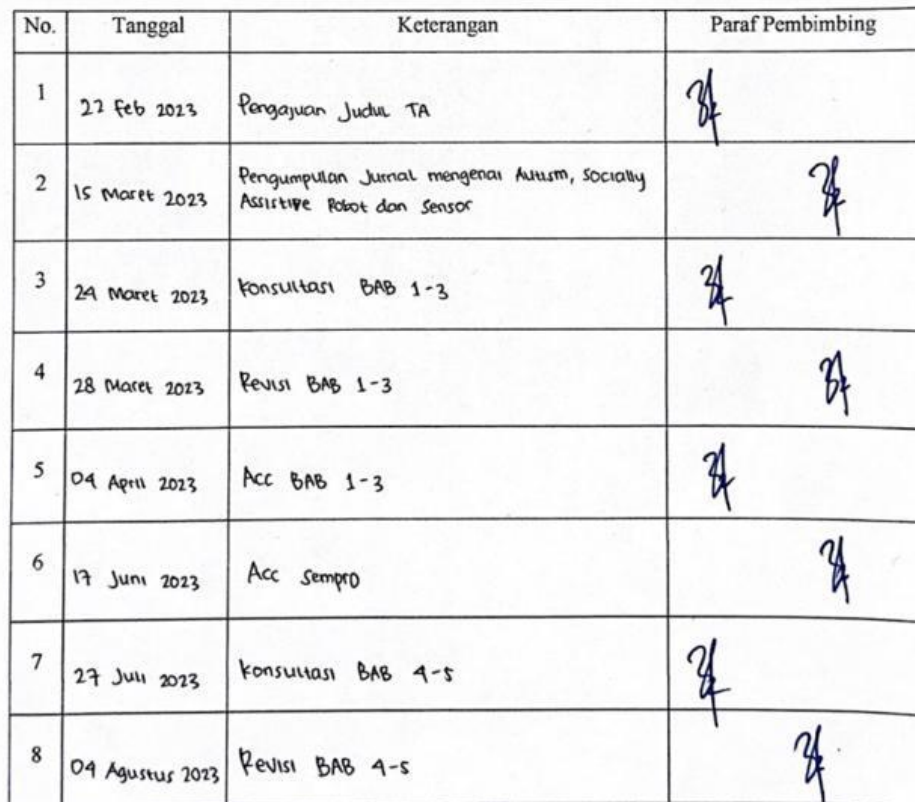 No. Tanggal Keterangan Paraf Pembimbing
1 22 Feb 2023 Pengajuan Judul TA
2 15 Maret 2023 Pengumpulan Jurnal mengenai Autism, Socially
Assistive Robot dan Sensor
3 24 Maret 2023 Konsultasi BAB 1-3
4 28 Maret 2023 Revisi BAB 1-3
5 04 April 2023 Acc BAB 1-3
6 17 Juni 2023 Acc Sempro
7 27 Juli 2023 Konsultasi BAB 4-5
8 04 Agustus 2023 Revisi BAB 4-5